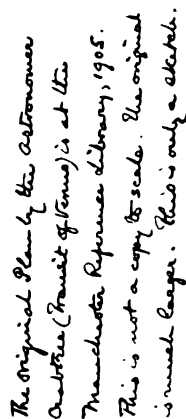 The original Plan by the astronomer
Crabtree (Transit of Venus) is at the
Manchester Reference Library, 1905.
This is not a copy to scale. The original
is much larger. This is only a sketch.